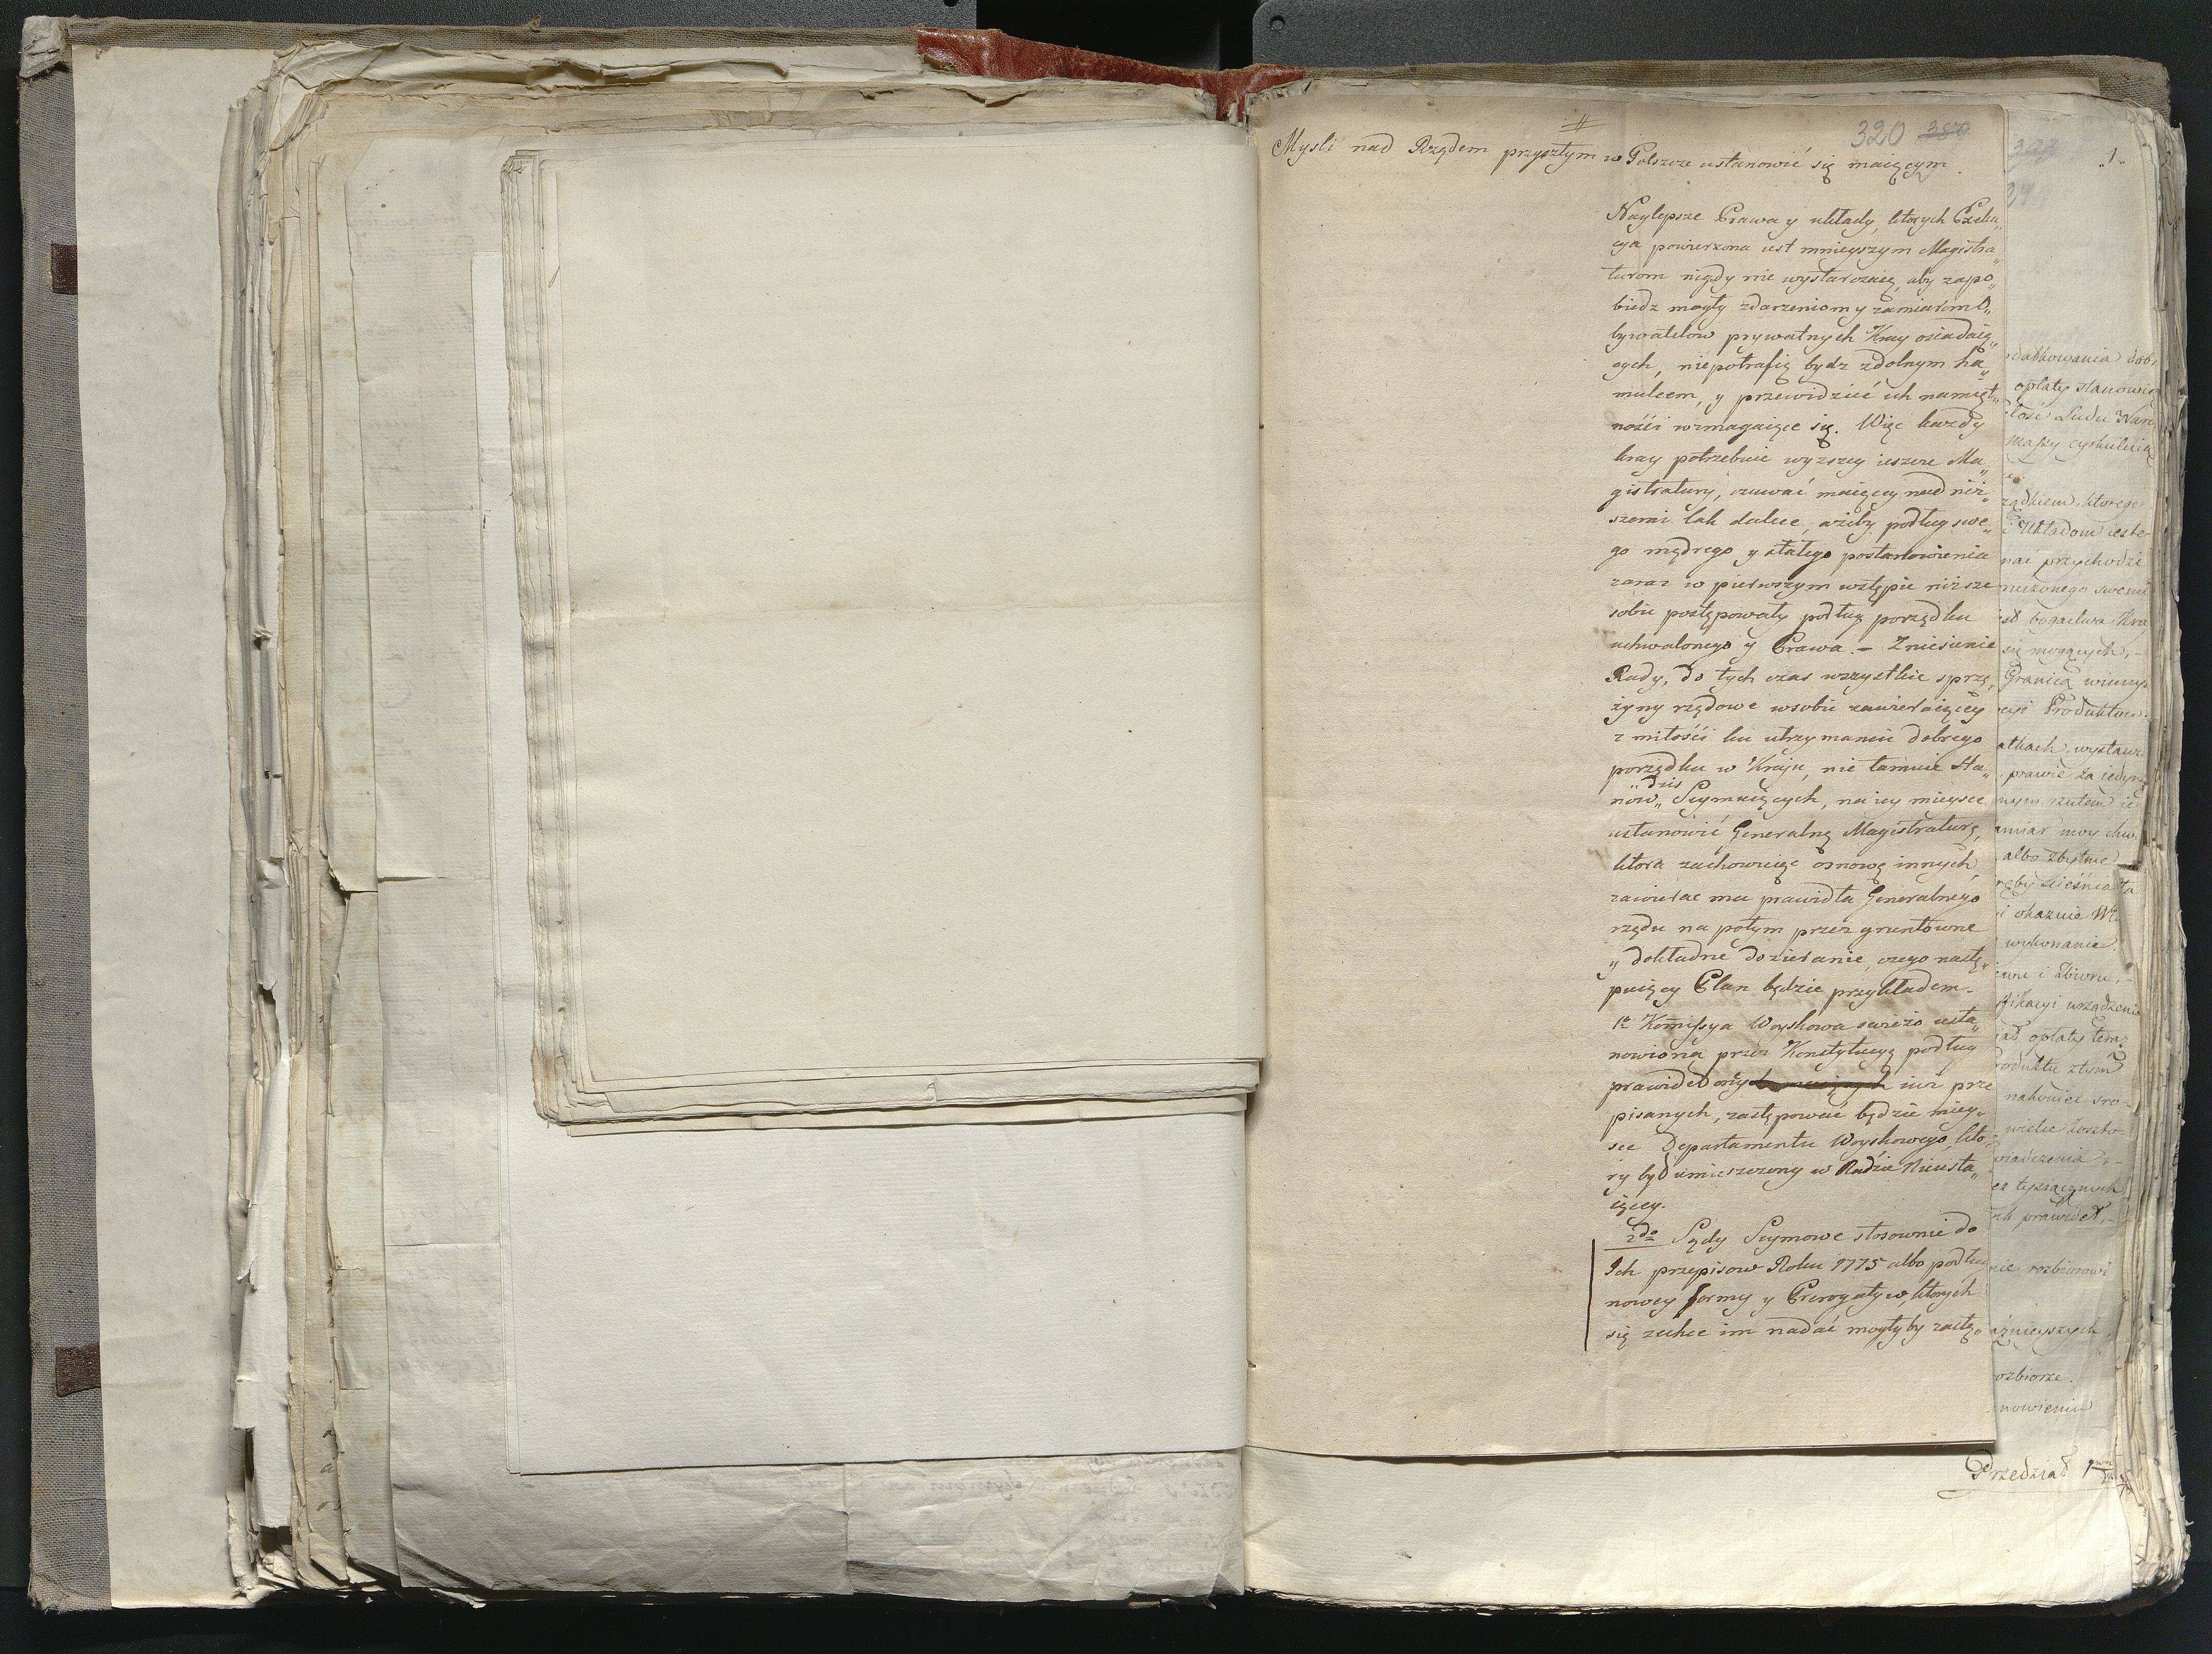 320 380
Mysli nad Rządem przyszłym w Polszcze ustanowić się maiącym.
Naylepsze Prawa y układy, ktorych Exeku„
cya powierzona iest mnieyszym Magistra„
turom nigdy nie wystarczaią, aby zapo„
biedz mogły zdarzeniom y zamiarom O„
bywatelow prywatnych Kray osiadaią„
cych, niepotrafią bydz zdolnym ha„
mulcem, y przewidzieć ich namięt„
nośći wzmagaiące się. Więc każdy
kray potrzebuie wyzszey ieszcze Ma„
gistratury, czuwać maiącey nad niż„
szemi tak dalece, ażeby podług swe„
go mądrego y stałego postanowienia
zaraz w pierwszym wstępie niższe
sobie postępowały podług porządku
uchwalonego y Prawa. – Zniesienie
Rady, do tych czas wszystkie sprzę„
żyny rządowe wsobie zawieraiącey
z miłośći ku utrzymaniu dobrego
porządku w Kraju, nie tamuie Sta„
„ dzis
now„ Seymuiących, na iey mieysce
ustanowić Generalną Magistraturę,
ktora zachowuiąc osnowę innych,
zawierac ma prawidła Generalnego
rządu na potym przez gruntowne
y dokładne dozieranie, czego nastę„
puiący Plan będzie przykładem.
1º Kommissya Woyskowa swieżo usta„
nowiona przez Konstytucyą podług
prawideł oney iuż prze
pisanych, zastępować będzie miey„
sce Departamentu Woyskowego, kto„
ry był umieszczony w Radzie Nieusta„
iącey.
2do Sądy Seymowe stosownie do
Ich przepisow Roku 1775 albo podług
nowey formy y Prerogatyw, ktorych
się zechce im nadać mogłyby zastę„
„1„
datkowania dob
opłaty stanowi
łość Ludu Nar
massy cyrkuluią
ządkiem, ktorego
Układom iest
nać przychodzi
nuzonego swemi
bogactwa Kra
się mogących, –
Granicą winny
Produktow
atkach, wystaw
prawie za iedyn
nym
amiar moy chw
albo zbytnie
okazuie
wykonanie
fikacyi urządzenia
opłaty tem
roduktu ztym
nakoniec
wielce koszto
wiadczenia, –
tysiącznych
prawideł, –
nie rozbiorowi
aznieyszych
ozbiorze.
nowieniu
Przedział 1wszy